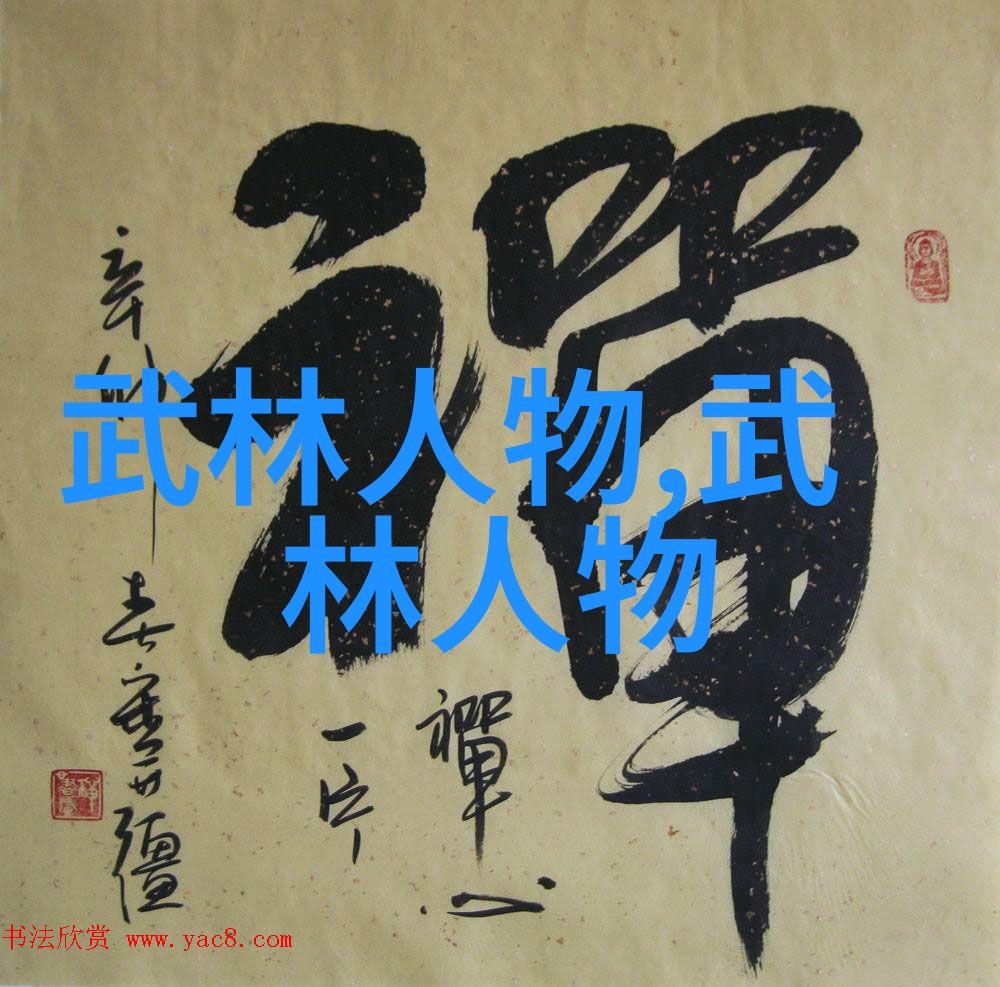 禪
武林人物,武
林人物
禪心
一片
辛卯春
书法欣赏 www.yac8.com